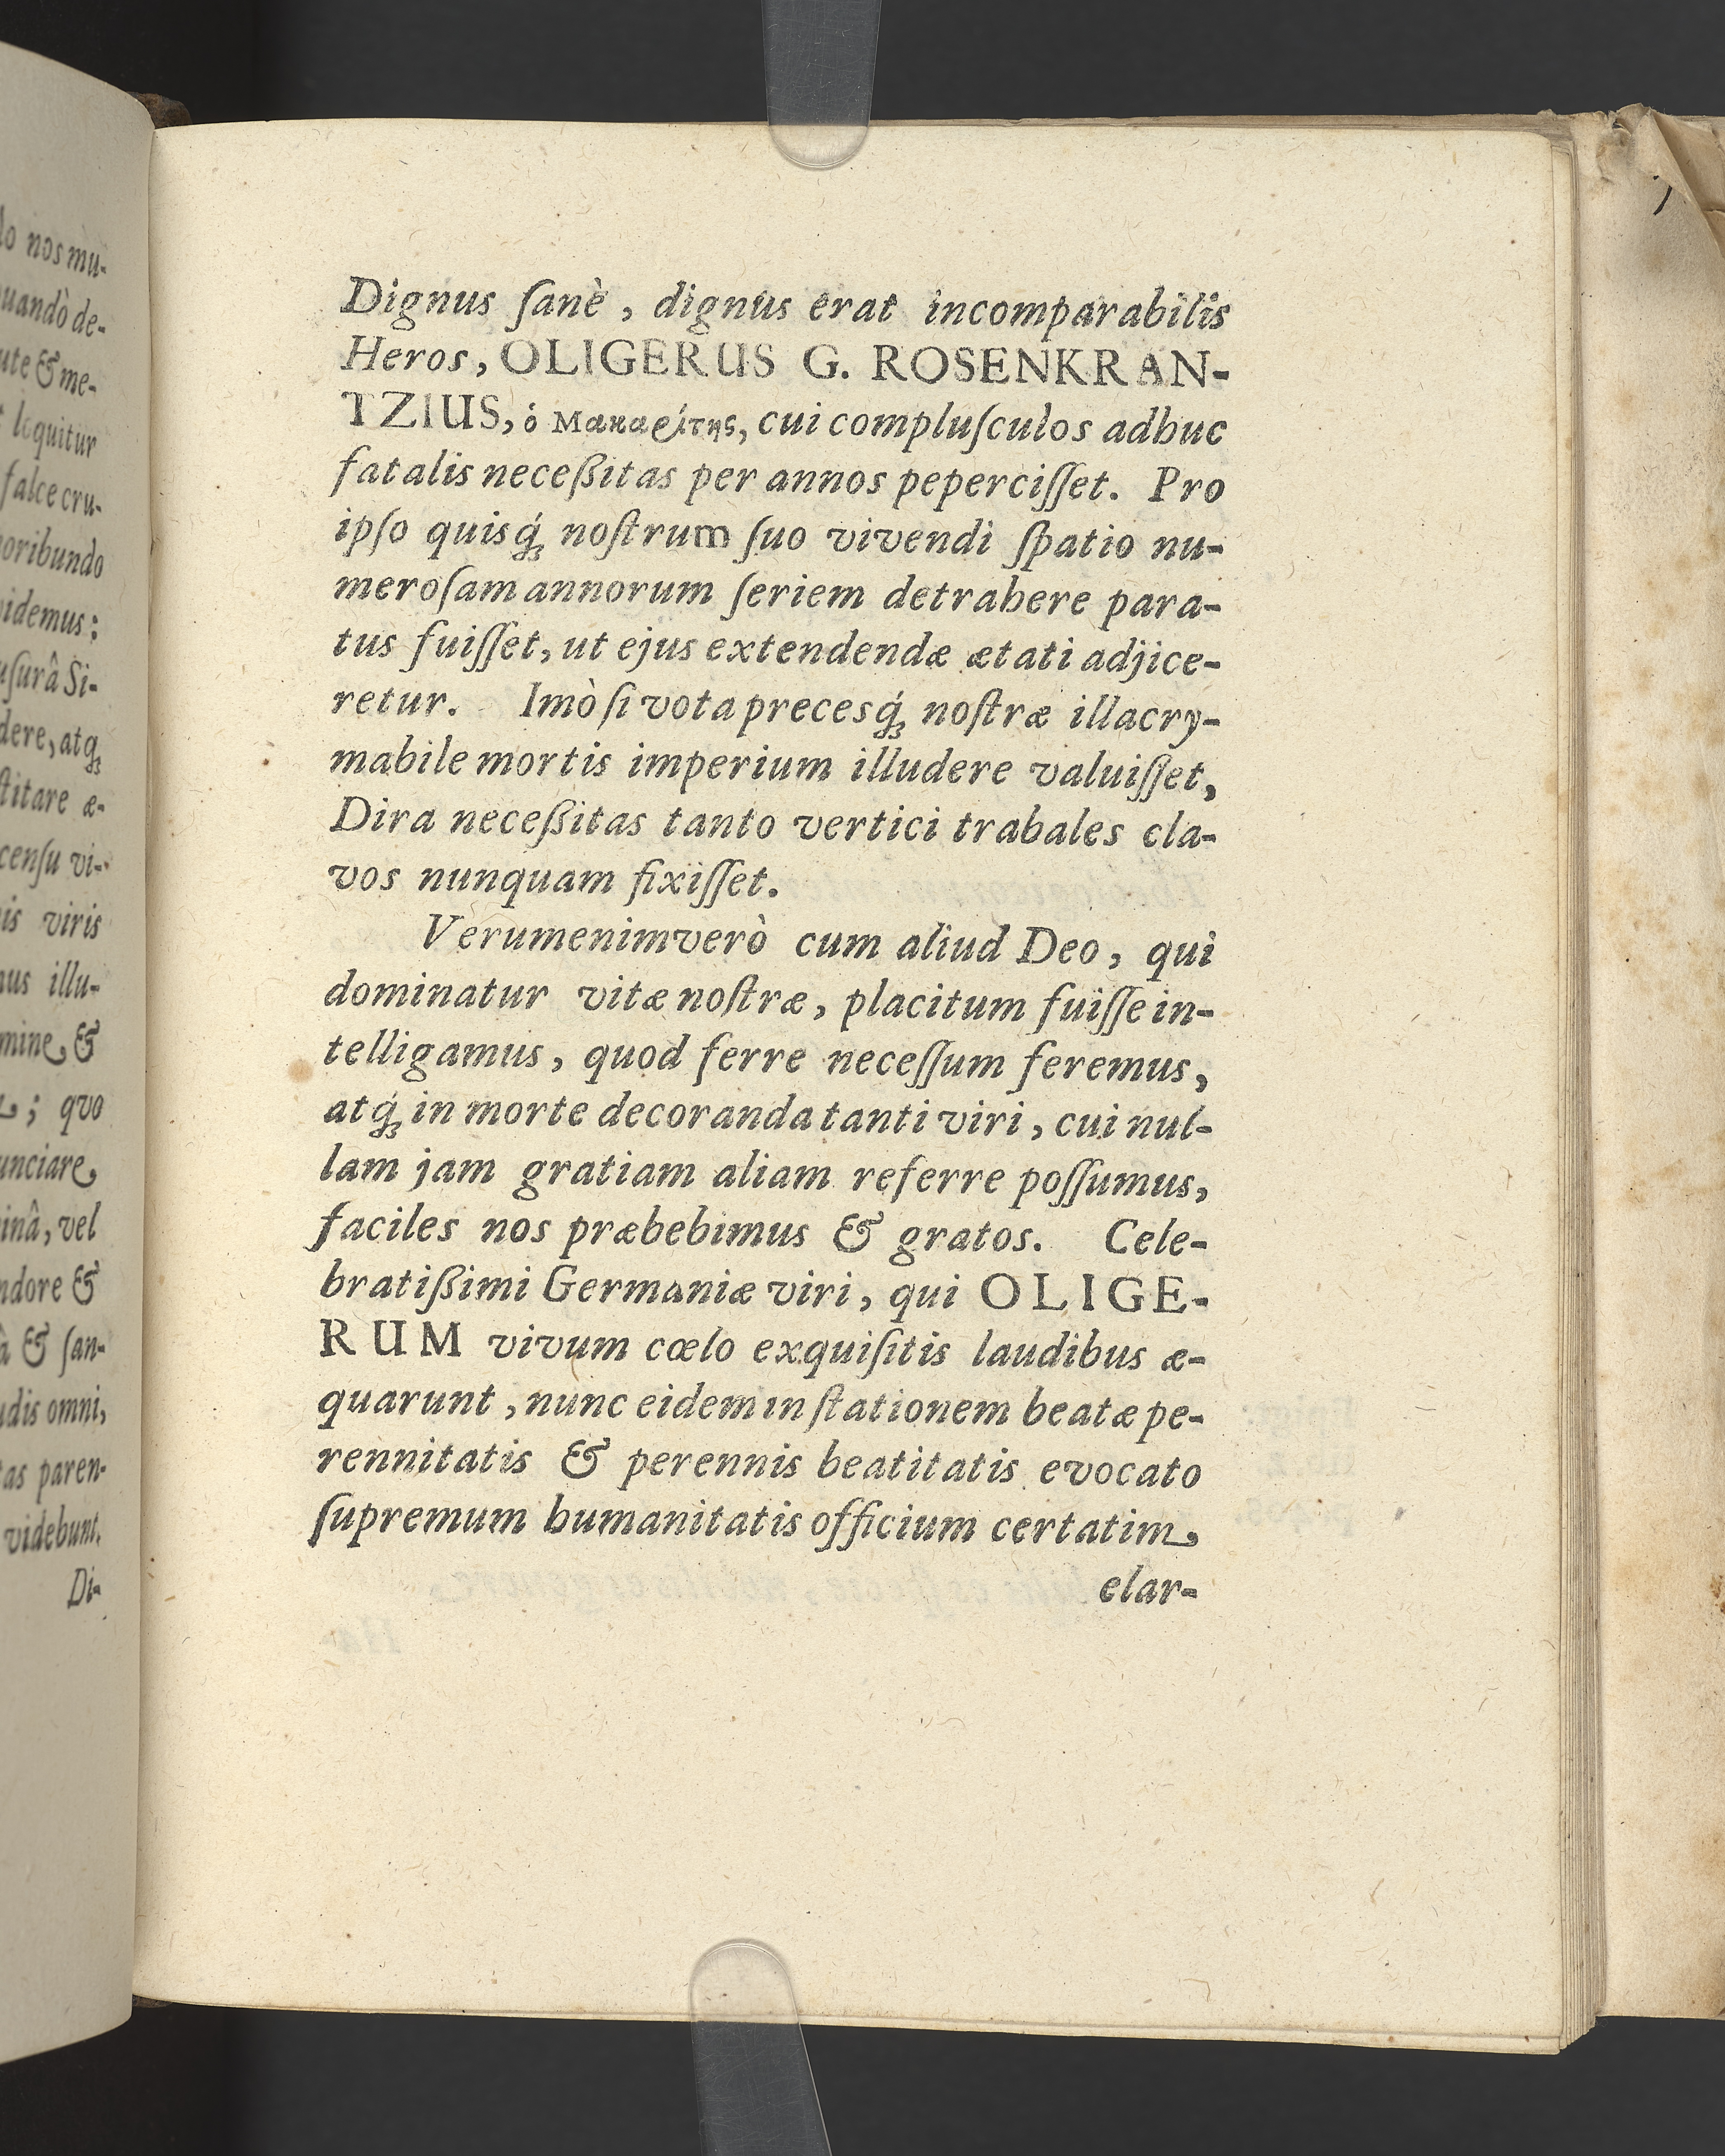 lo nos mu-
uandò de-
ute & me-
loquitur
falce cru-
oribundo
videmus:
uſurâ Si-
dere, atq́;
ſtitare æ-
cenſu vi-
is viris
us illu-
mine &
; quo
unciare
inâ, vel
ndore &
â & ſan-
udis omni,
tas paren-
videbunt.
Di-
Dignus ſanè, dignus erat incomparabilis
Heros, OLIGERUS G. ROSENKRAN-
TZIUS, ὁ Μακαρίτης, cui compluſculos adhuc
fatalis neceßitas per annos peperciſſet. Pro
ipſo quisq́; noſtrum ſuo vivendi ſpatio nu-
meroſam annorum ſeriem detrahere para-
tus fuiſſet, ut ejus extendendæ ætati adjice-
retur. Imò ſi vota precesq́; noſtræ illacry-
mabile mortis imperium illudere valuiſſet,
Dira neceßitas tanto vertici trabales cla-
vos nunquam fixiſſet.
Verumenimverò cum aliud Deo, qui
dominatur vitæ noſtræ, placitum fuiſſe in-
telligamus, quod ferre neceſſum feremus,
atq́; in morte decoranda tanti viri, cui nul-
lam jam gratiam aliam referre poſſumus,
faciles nos præbebimus & gratos. Cele-
bratißimi Germaniæ viri, qui OLIGE-
RUM vivum cœlo exquiſitis laudibus æ-
quarunt, nunc eidem in ſtationem beatæ pe-
rennitatis & perennis beatitatis evocato
ſupremum humanitatis officium certatim
elar-